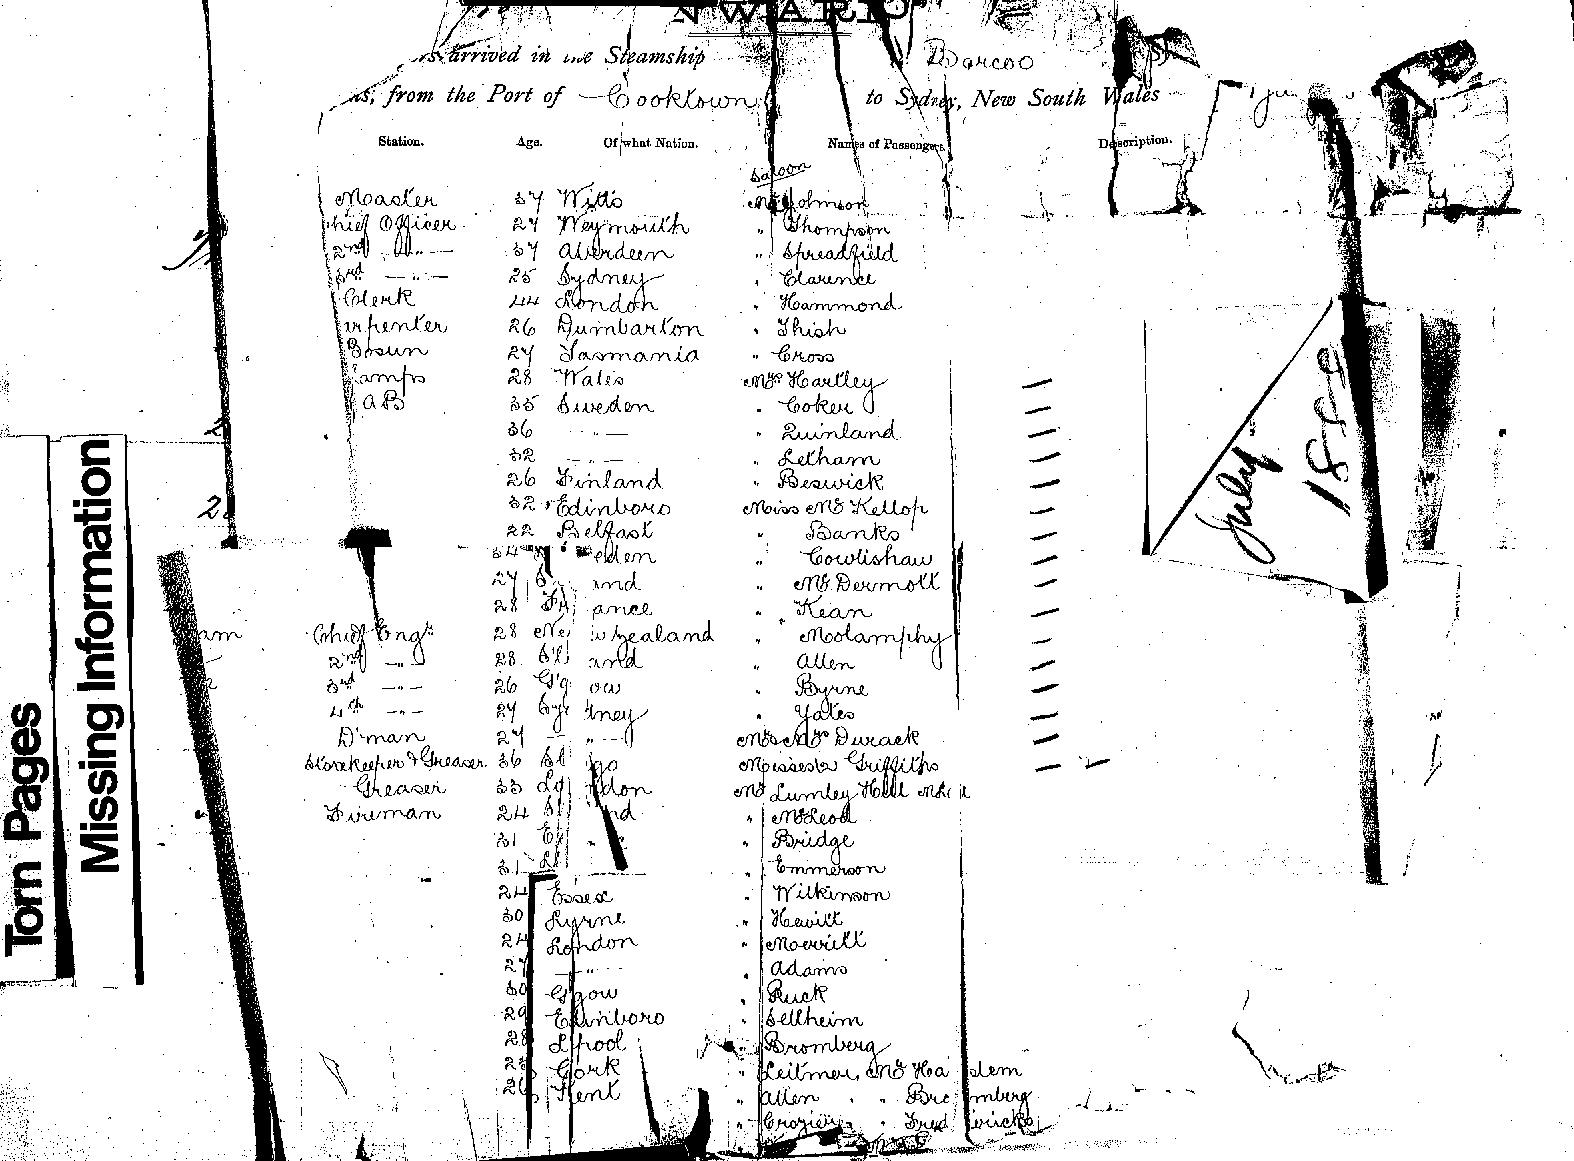 NWARD
arrived in the Steamship Barcoo
from the Port of Cooktown to Sydney, New South Wales
Station. Age. Of what Nation. Names of Passengers. Description.
Saloon
Master 37 Witts Mr Johnson
hief Officer 27 Weymouth " Thompson
2nd —"— 37 Aberdeen " Spreadfield
3rd —"— 25 Sydney " Clarence
Clerk 44 London " Hammond
arpenter 26 Dumbarton " Thish
Bosun 27 Tasmania " Cross
Lamps 28 Wales Mrs Hartley —
AB 35 Sweden " Coker —
36 —"— " Quinland —
32 —"— " Letham —
26 Finland " Beswick —
32 Edinboro Miss McKellop —
22 Belfast " Banks —
34 eden " Cowlishaw —
27 and " McDermott —
28 ance " Kean —
Chief Engr 28 New Zealand " Molamphy —
2nd —"— 28 and " Allen —
3rd —"— 26 ow " Byrne —
4th —"— 27 Sydney " Yates —
D'man 27 —"— Mrs McDurack —
Storekeeper & Greaser 36 go Misses Griffiths — —
Greaser 33 London Mr Lumley Hill
Fireman 24 nd " McLeod
31 " Bridge
31 " Emmerson
24 Essex " Wilkinson
30 Lyrne " Hewitt
24 London " Merritt
27 —"— " Adams
30 G'gow " Ruck
29 Edinboro " Sellheim
28 L'pool " Bromberg
Cork " Leitmer, Mr
26 Kent " Allen " Bromberg
" Crozier "
July
1889
Torn Pages
Missing Information